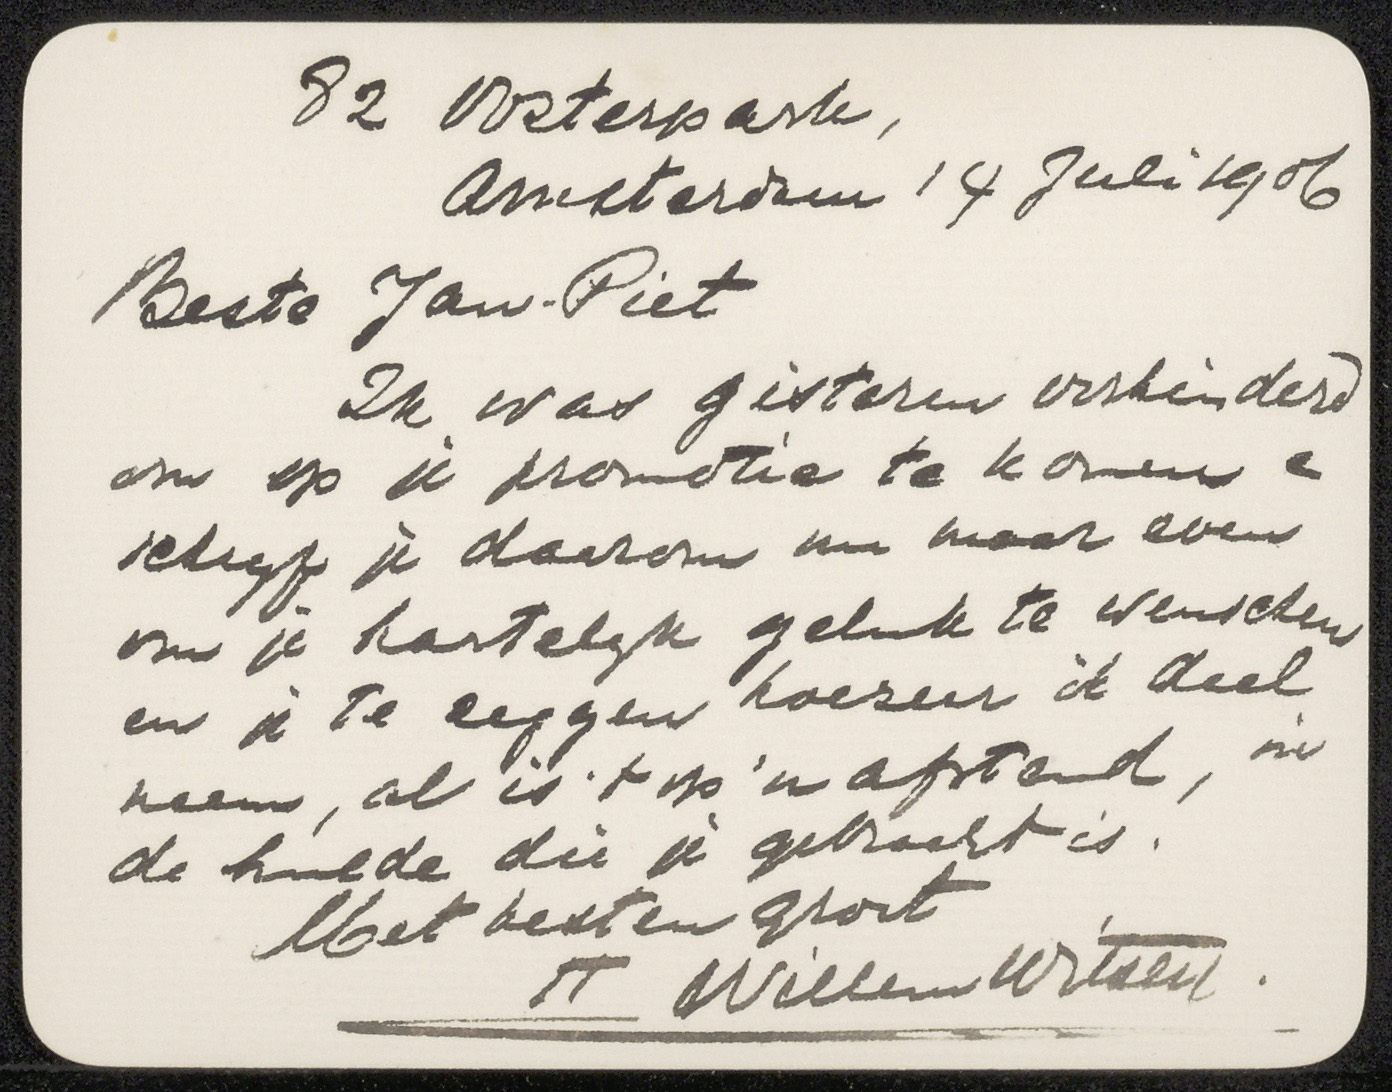 82 Oosterpark,
Amsterdam 14 Juli 1906
Beste Jan-Piet
Ik was gisteren verhinderd
om op je promotie te komen e
schryf je daarom nu maar even
om je hartelyk geluk te wenschen
en je te zeggen hoezeer ik deel
neem, al is 't op 'n afstand, in
de hulde die je gebracht is.
Met besten groet
tt Willem Witsen.